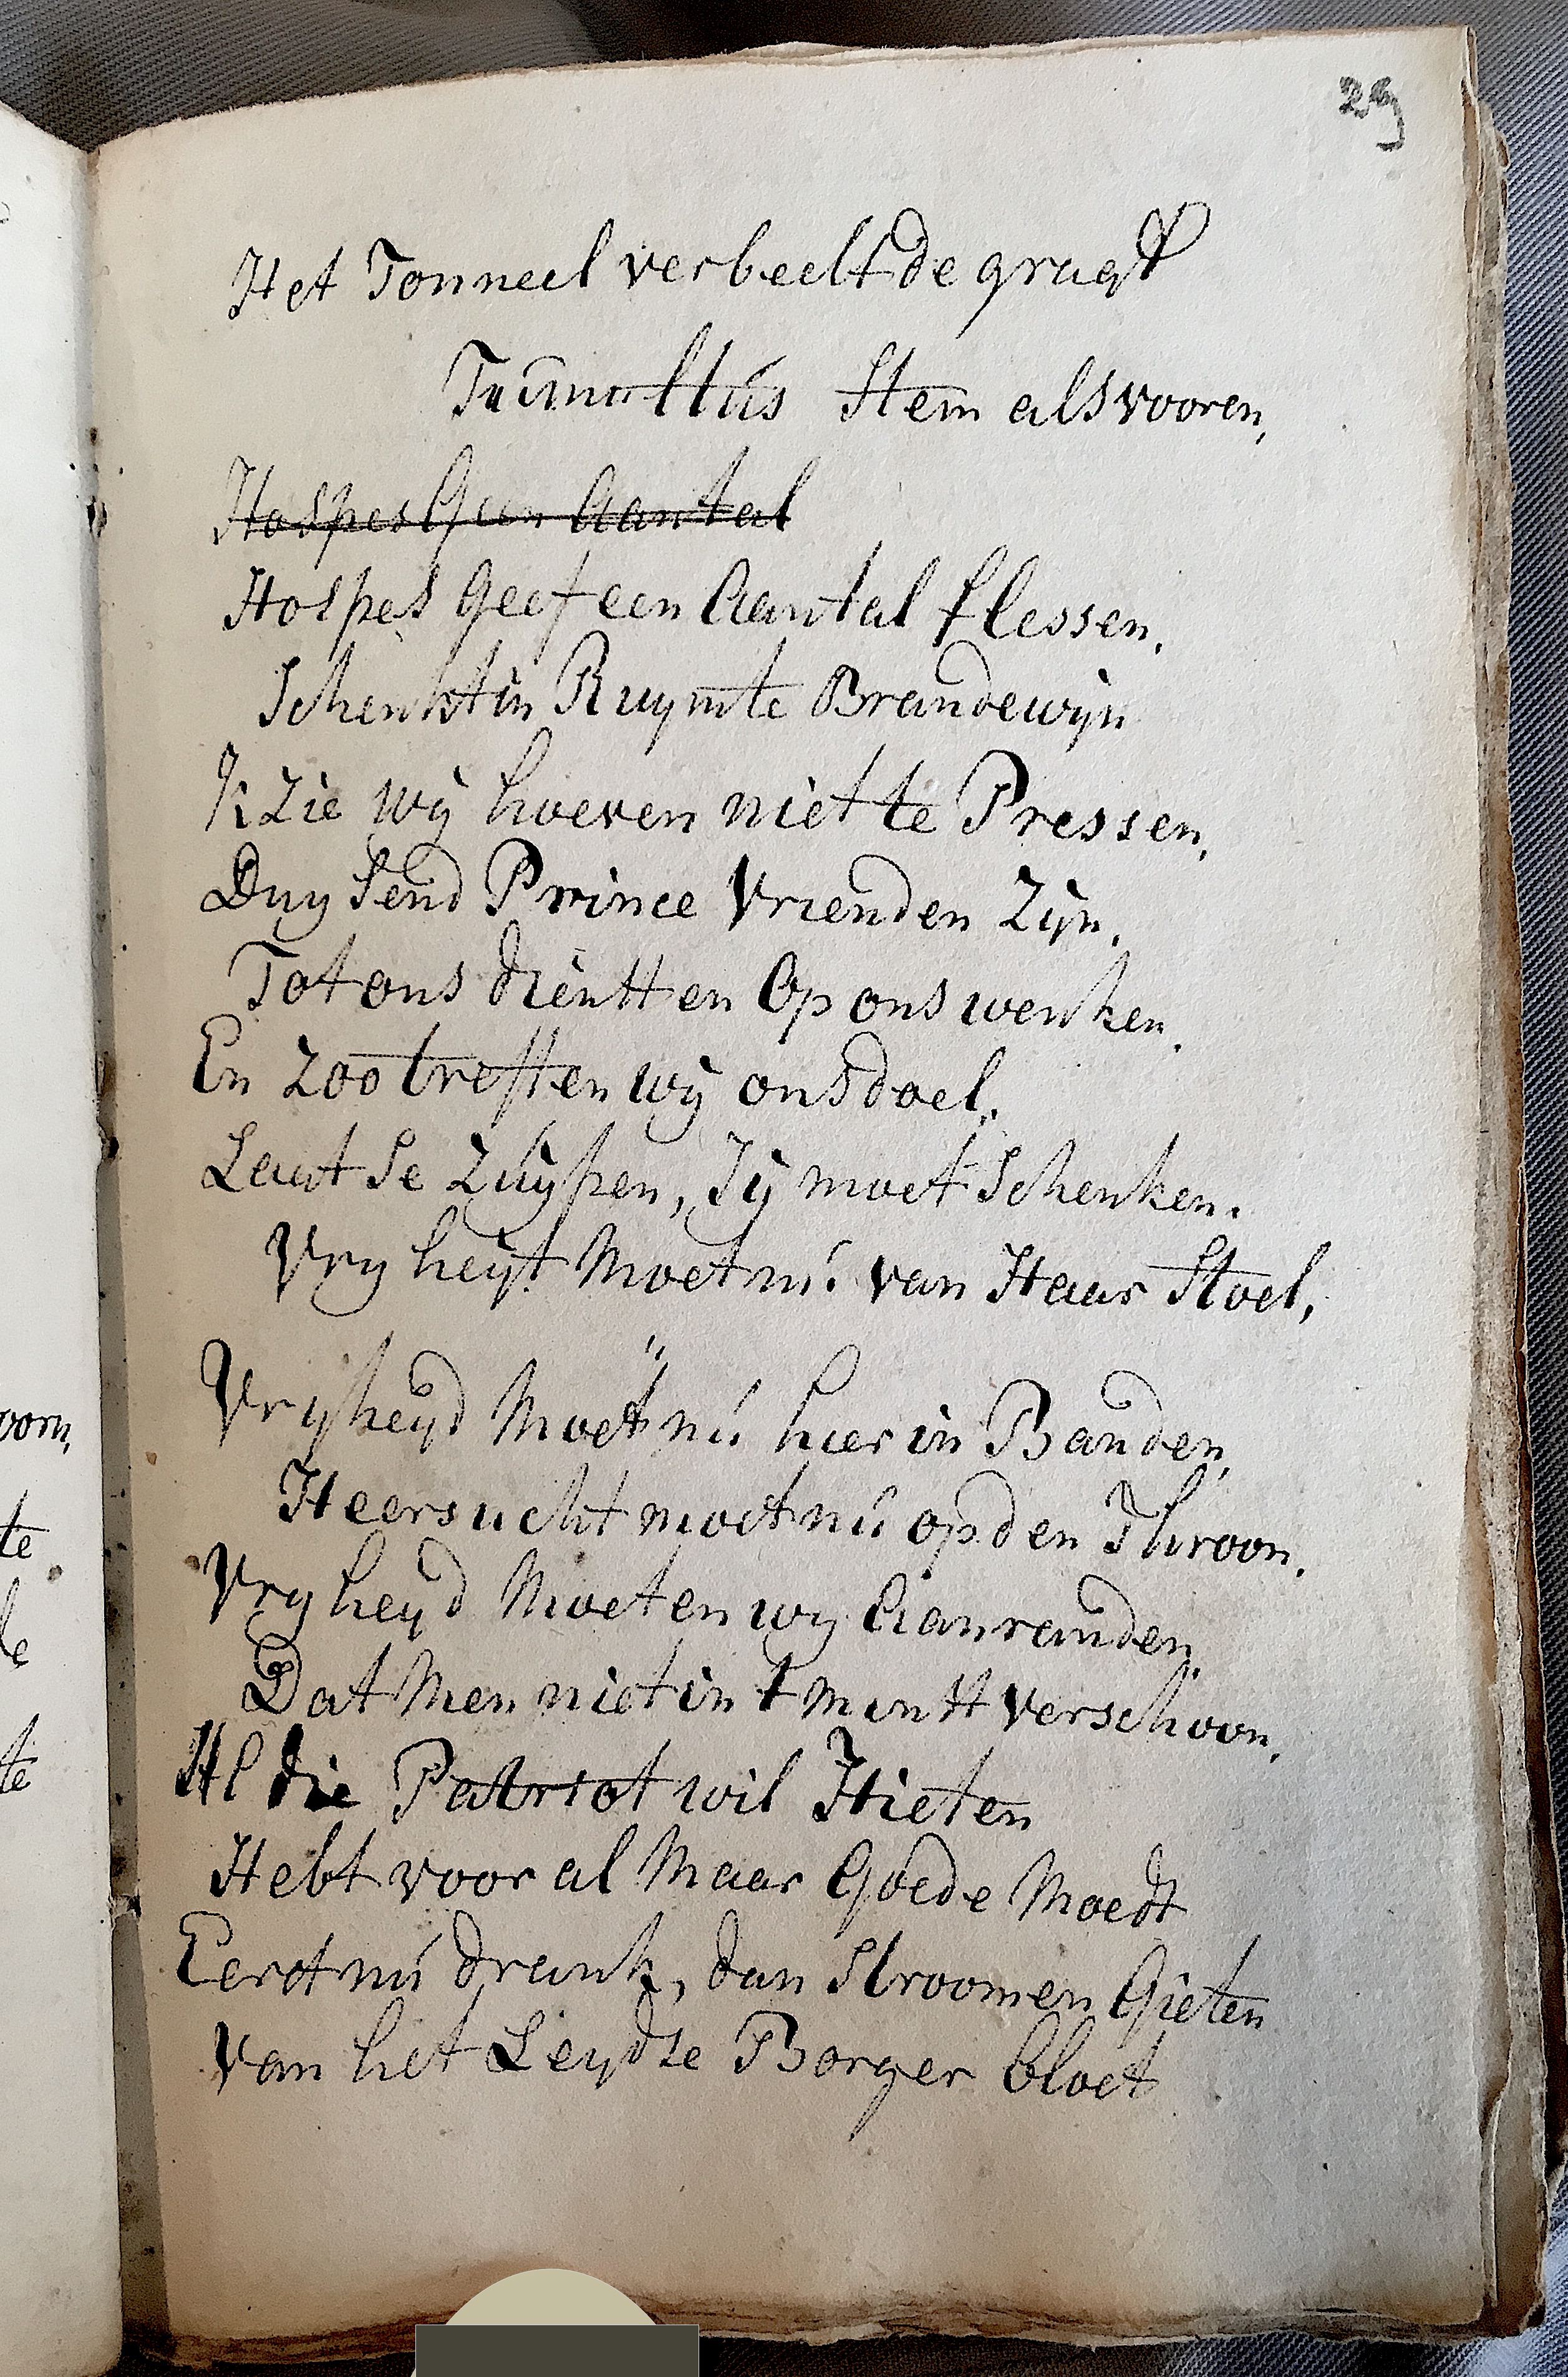 29
Het Tonneel verbeelt de gragt
Tumoltus Stem als vooren,
Hospes Geen Aantal
Hospes Geef een Aantal flessen,
Schenkt in Ruymte Brandewijn
K Zie wij hoeven niet te Pressen,
Duysend Prince Vrienden Zijn,
Tot ons dienst en Op ons wenken,
En zoo treffen wij ons doel,
Laat Se Zuypen, Jij moet Schenken.
Vryheyt Moet nú van Haar Stoel,
Vryheyd Moet nú hier in Banden,
Heersucht moet nú op den Throon,
Vryheyd Moeten wy Aanranden,
Dat Men niet in t minst verschoon,
Al die Patriot wil Hieten
Hebt voor al Maar Goede Moedt
Eerst nú drank, dan Stroomen Gieten
Van het Leydse Borger bloet
oorn,
te
le
te